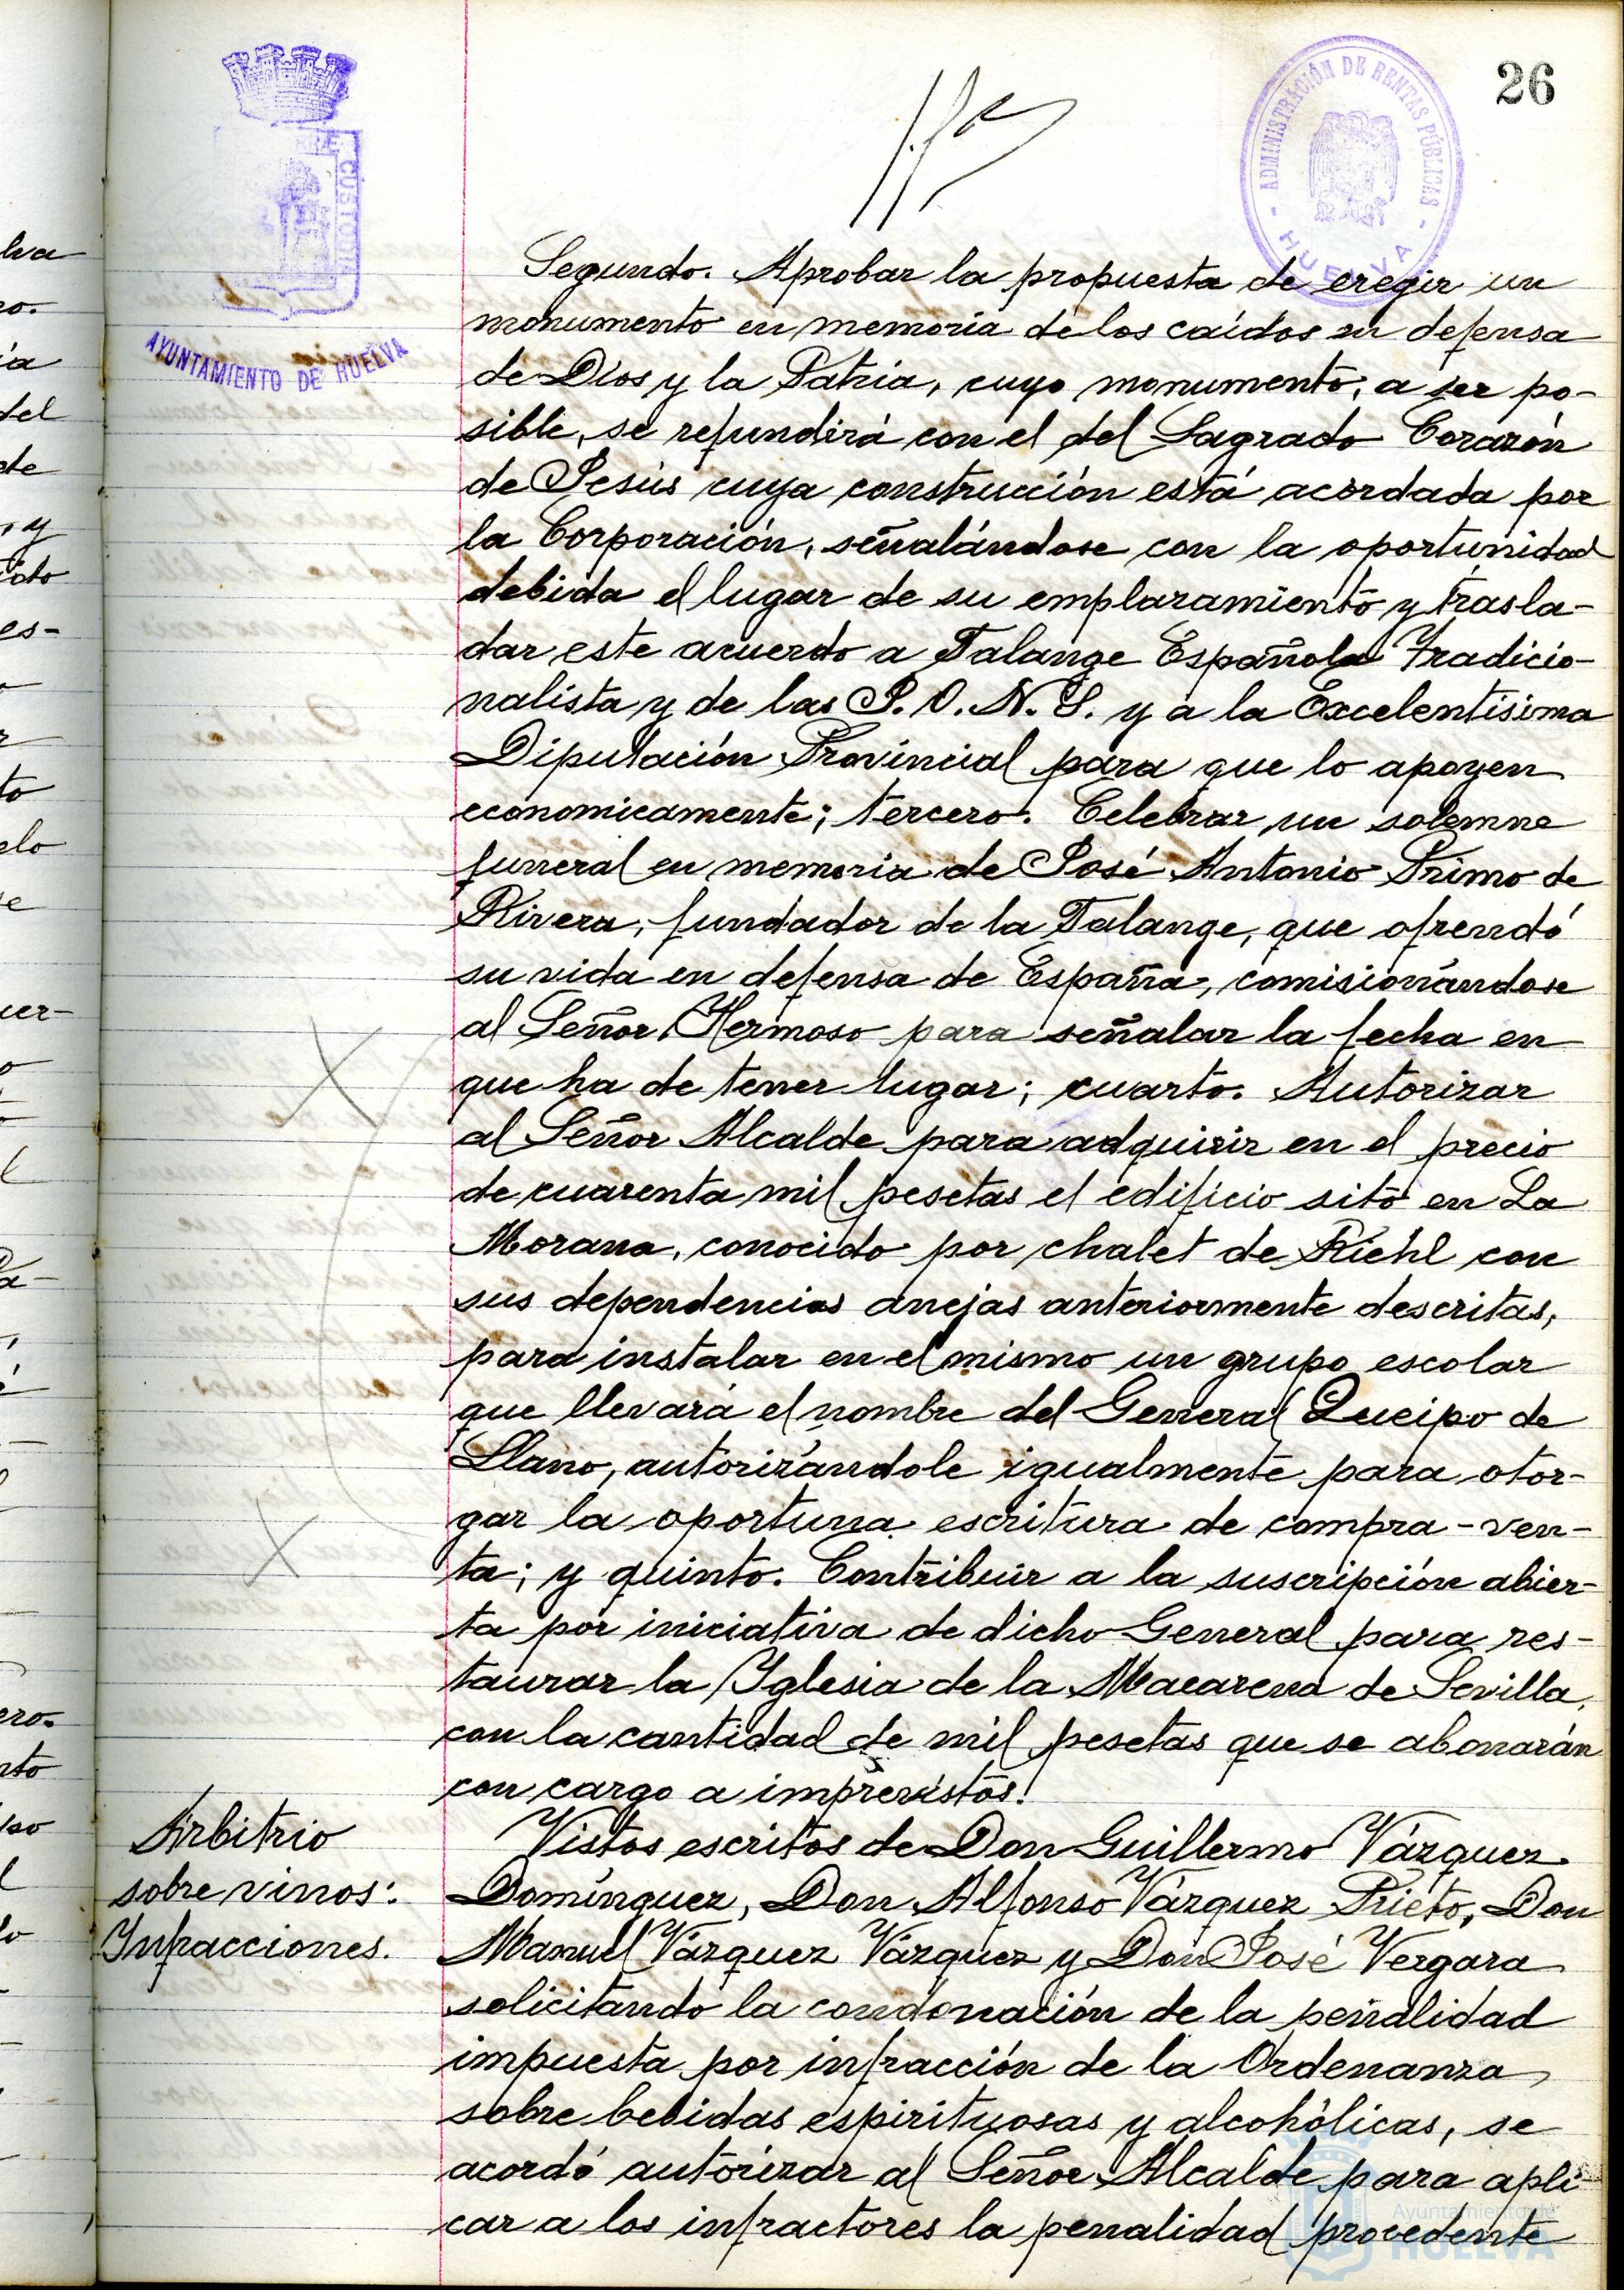 26
ADMINISTRACIÓN DE RENTAS PÚBLICAS
HUELVA
CUSTODIA
AYUNTAMIENTO DE HUELVA
Segundo. Aprobar la propuesta de eregir un
monumento en memoria de los caídos en defensa
de Dios y la Patria, cuyo monumento, a ser po-
sible, se refundirá con el del Sagrado Corazón
de Jesús cuya construcción está acordada por
la Corporación, señalándose con la oportunidad
debida el lugar de su emplazamiento y trasla-
dar este acuerdo a Falange Española Tradicio-
nalista y de las J. O. N. S. y a la Excelentísima
Diputación Provincial para que lo apoyen
economicamente; tercero. Celebrar un solemne
funeral en memoria de José Antonio Primo de
Rivera, fundador de la Falange, que ofrendó
su vida en defensa de España, comisionándose
al Señor Hermoso para señalar la fecha en
que ha de tener lugar; cuarto. Autorizar
al Señor Alcalde para adquirir en el precio
de cuarenta mil pesetas el edificio sito en La
Morana, conocido por chalet de Riehl con
sus dependencias anejas anteriormente descritas,
para instalar en el mismo un grupo escolar
que llevará el nombre del General Queipo de
Llano, autorizándole igualmente para otor-
gar la oportuna escritura de compra-ven-
ta; y quinto. Contribuir a la suscripción abier-
ta por iniciativa de dicho General para res-
taurar la Iglesia de la Macarena de Sevilla,
con la cantidad de mil pesetas que se abonarán
con cargo a imprevistos.
Arbitrio
sobre vinos:
Infracciones.
Vistos escritos de Don Guillermo Vázquez
Domínguez, Don Alfonso Vázquez Prieto, Don
Manuel Vázquez Vázquez y Don José Vergara
solicitando la condonación de la penalidad
impuesta por infracción de la Ordenanza
sobre bebidas espirituosas y alcohólicas, se
acordó autorizar al Señor Alcalde para apli-
car a los infractores la penalidad procedente
Ayuntamiento de
HUELVA